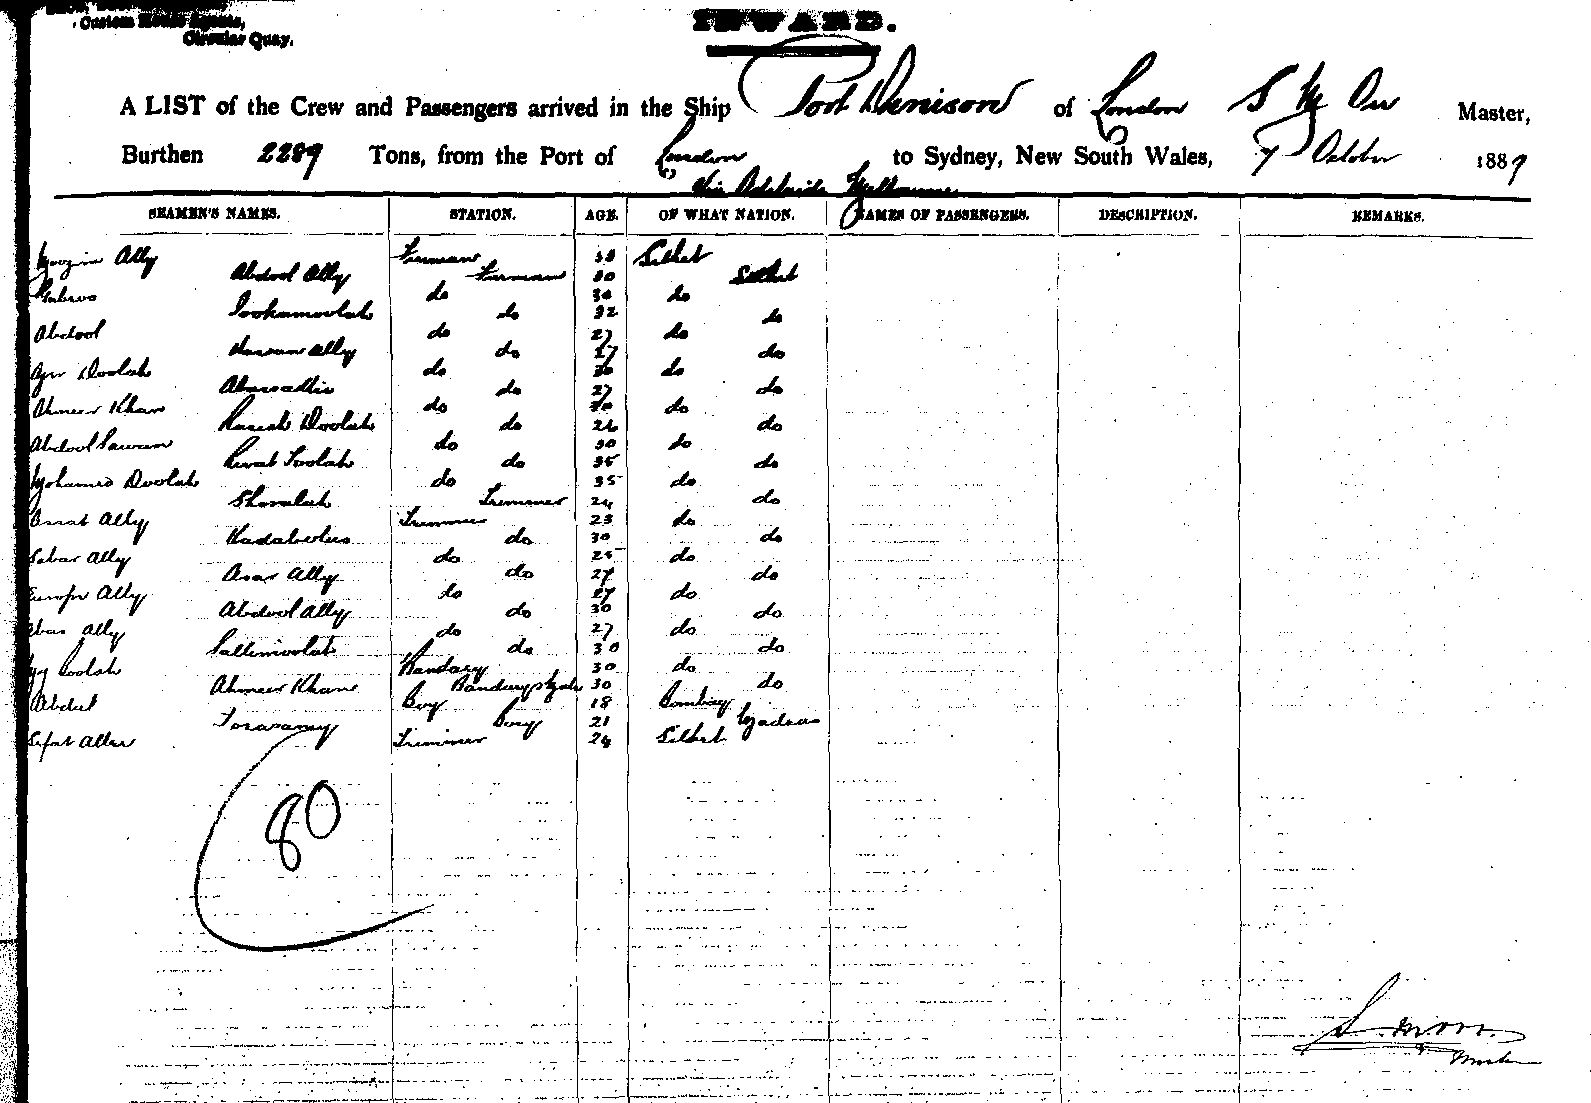 Custom House Agents,
Circular Quay.
INWARD.
A LIST of the Crew and Passengers arrived in the Ship Port Denison of London S M Orr Master,
Burthen 2289 Tons, from the Port of London to Sydney, New South Wales, 7 October 1889
Via Adelaide Melbourne
SEAMEN'S NAMES. STATION. AGE. OF WHAT NATION. NAMES OF PASSENGERS. DESCRIPTION. REMARKS.
Ally Fireman 38 Silhet
Abdool Ally Fireman 30 Silhet
do do
do 32 do
Abdool do 27 do
Hassan Ally do 27 do
Doolah do 30 do
do 27 do
Ahmeer Khan do do
Doolah do 26 do
Abdool do 30 do
Toolah do 35 do
Mohamed Doolah do 35 do
Trimmer 24 do
Assat Ally Trimmer 23 do
do 30 do
Sabar Ally do 25 do
Asar Ally do 27 do
Europe Ally do 27 do
Abdool Ally do 30 do
Abas Ally do 27 do
do 30 do
Toolah Bandary 30 do
Ahmeer Khan Bandarys Mate 30 do
Abdul Boy 18 Bombay
Boy 21 Madras
Trimmer 24 Silhet
80
S. M Orr
Master